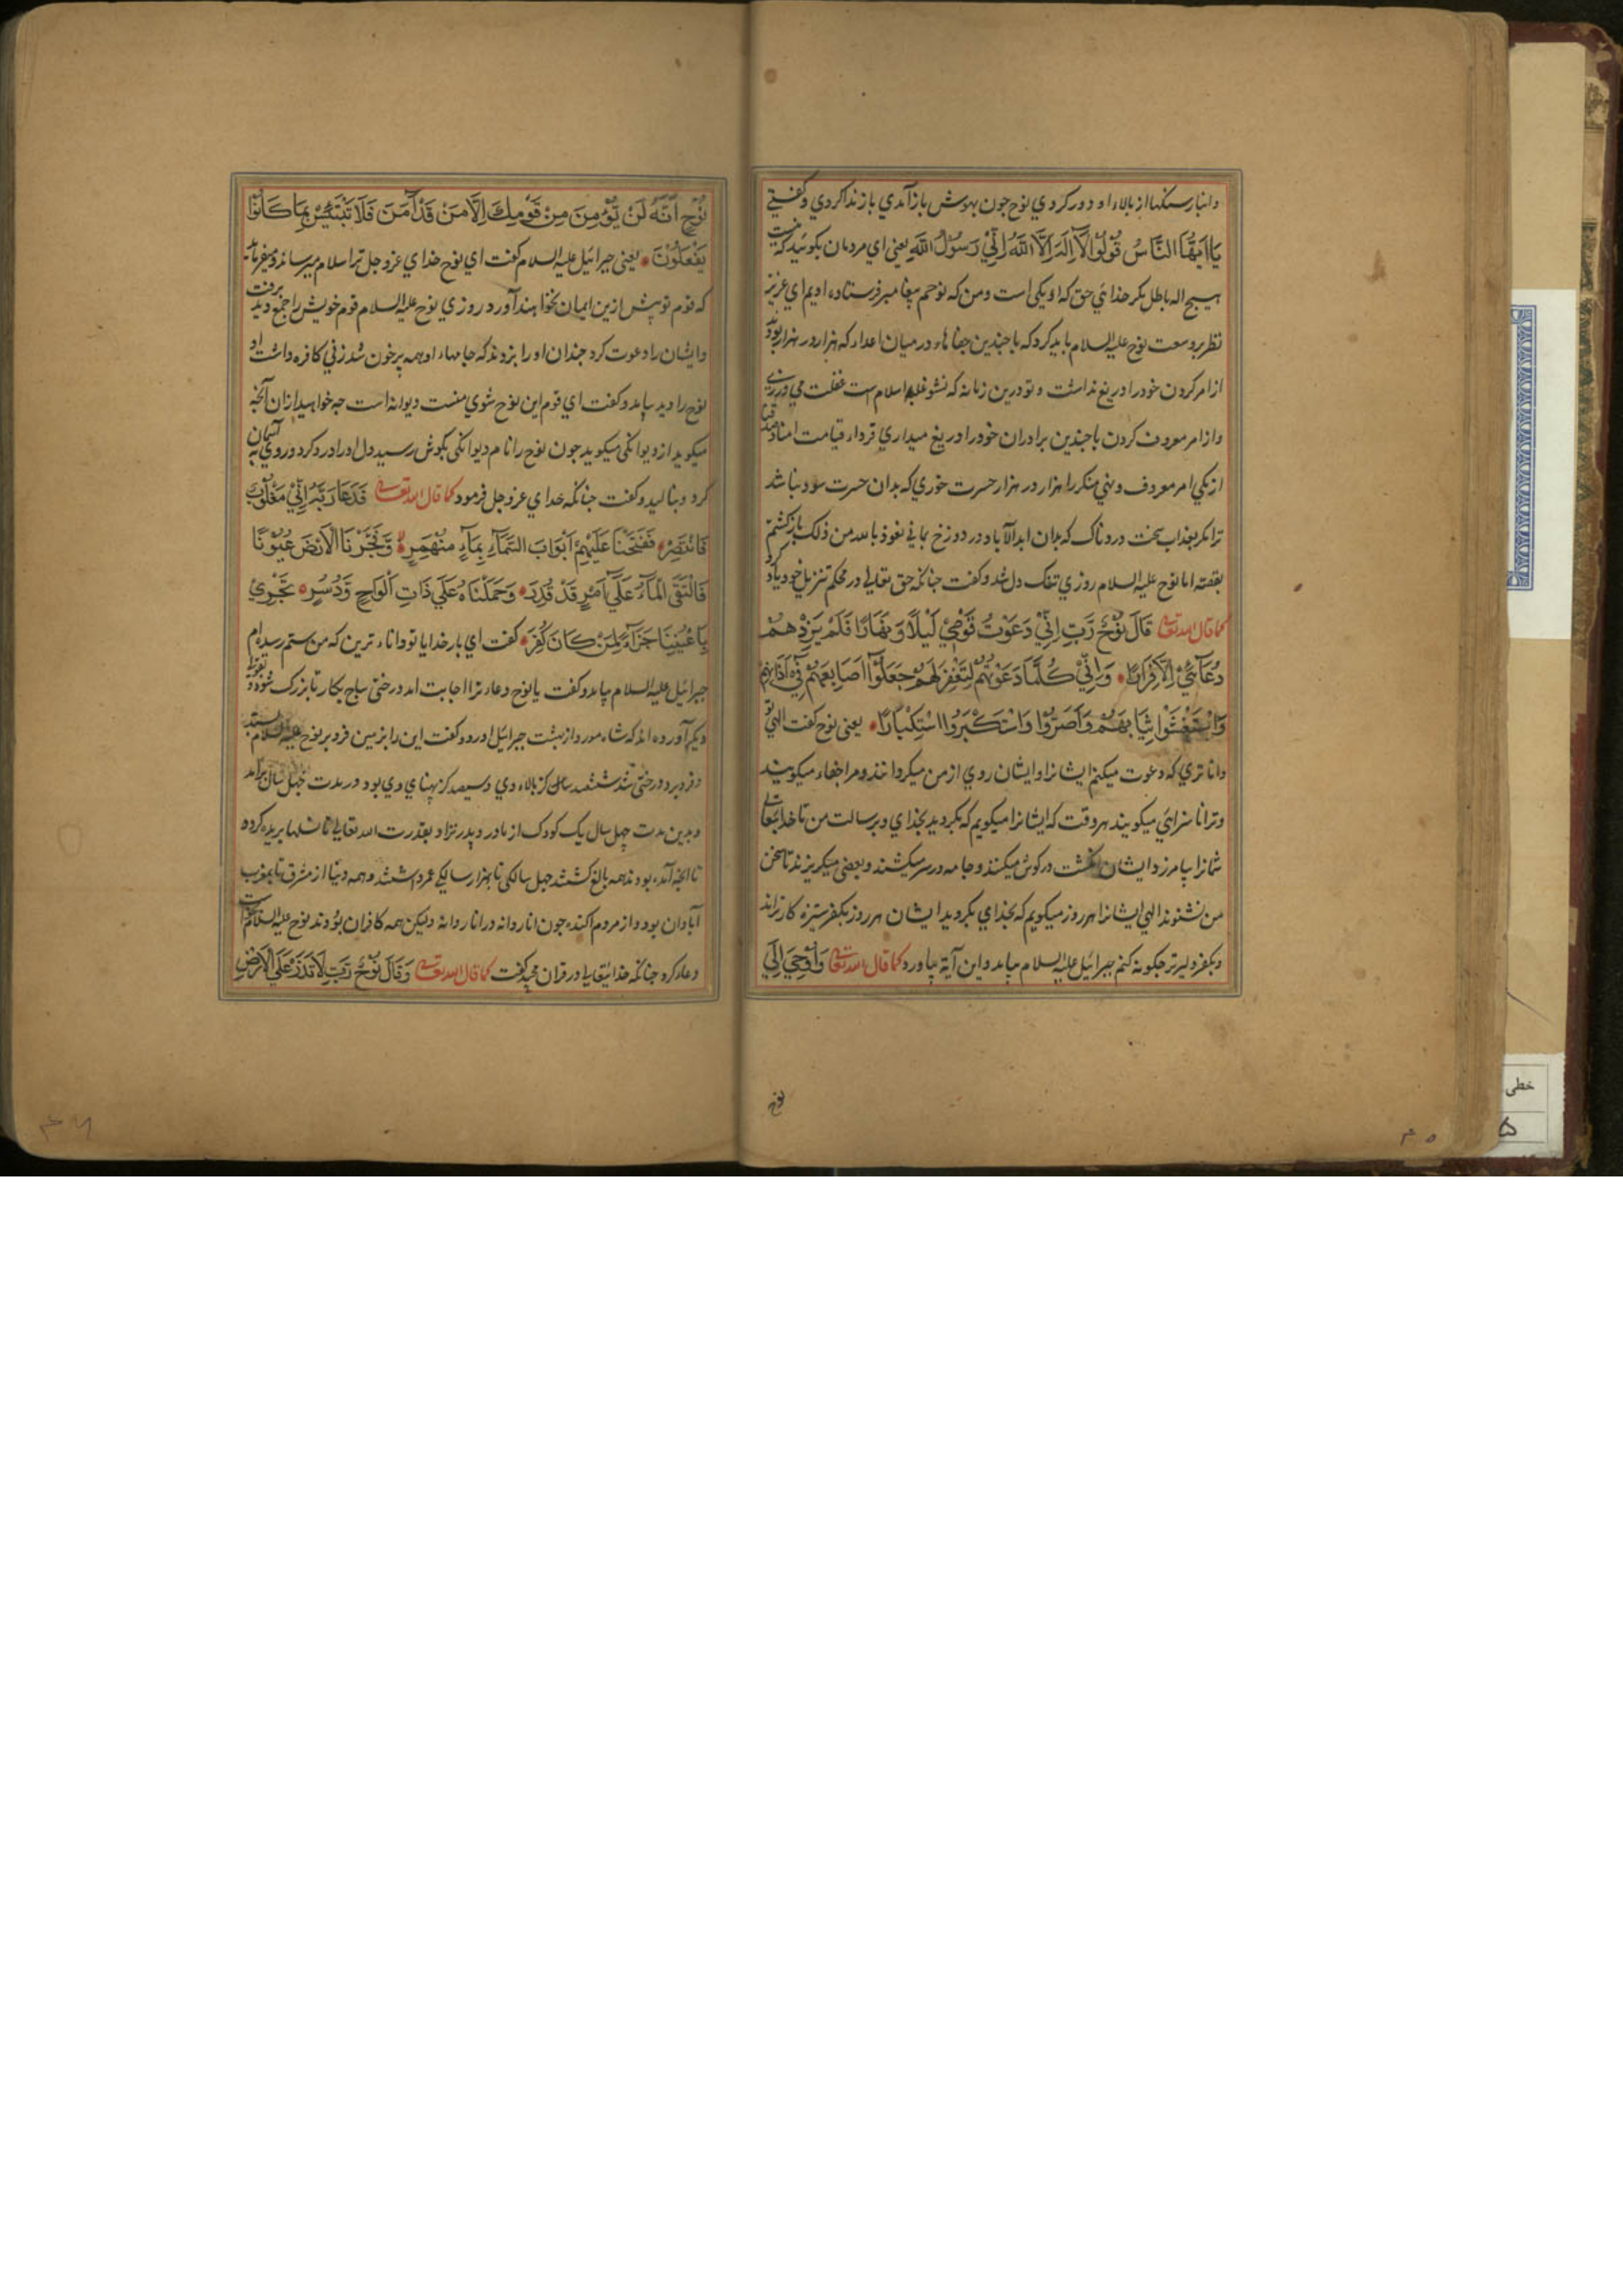 وانبار سنکها از بالاء او دور کردي نوح چون بهوش باز آمدي باز ندا کردي و کفتي
يَا اَيُّهَا النَّاسُ قُوْلُوْا لَآ اِلٰهَ اِلَّا اللّٰهُ اِنِّيْ رَسُوْلُ اللّٰهِ يعني اي مردمان بکوئيد که نيست
هيچ اله باطل مکر خدائي حق که او يکي است ومن که نوحم پيغامبر فرستاده اويم اي عزيز
نظر بر وسعت نوح عليه السلام بايد کرد که با چندين جفاهاء در ميان اعدا که هزار در هزار بودند
از امر کردن خود را دريغ نداشت و تو درين زمانه که نشو غلبه اسلام است غفلت مي ورزي
و از امر معروف کردن با چندين برادران خود را دريغ ميداري فرداء قيامت
از يکي امر معروف ونهي منکر را هزار در هزار حسرت خوري که بدان حسرت سود نباشد
ترا مکر بعذاب سخت دردناک که بدان ابد الآباد در دوزخ بماني نعوذ بالله من ذلک باز کشتم
بقصه اما نوح عليه السلام روزي تنک دل شد وکفت چنانکه حق تعالي در محکم تنزيل خود ياد کرد
کما قال الله تعالي قَالَ نُوْحٌ رَّبِّ اِنِّيْ دَعَوْتُ قَوْمِيْ لَيْلًا وَّنَهَارًا فَلَمْ يَزِدْهُمْ
دُعَآئِيْ اِلَّا فِرَارًا وَاِنِّيْ كُلَّمَا دَعَوْتُهُمْ لِتَغْفِرَ لَهُمْ جَعَلُوْٓا اَصَابِعَهُمْ فِيْٓ اٰذَانِهِمْ
وَاسْتَغْشَوْا ثِيَابَهُمْ وَاَصَرُّوْا وَاسْتَكْبَرُوا اسْتِكْبَارًا يعني نوح کفت الهي تو
دانا تري که دعوت ميکنم ايشانرا وايشان روي از من ميکردانند ومرا جفاء ميکويند
وترا ناسزائي ميکويند هر وقت که ايشانرا ميکويم که بکرديد بخداي وبرسالت من تا خدايتعالي
شمانرا بيامرزد ايشان انکشت در کوش ميکنند وجامه در سر ميکشند وبعضي ميکريزند تا سخن
من نشنوند الهي ايشانرا هر روز ميکويم که بخداي بکرويد ايشان هر روز بکفر ستيزه کارتراند
وبکفر دليرتر چکونه کنم جبرائيل عليه السلام بيامد واين آية بياورد کما قال الله تعالي وَاُوْحِيَ اِلٰي
نوح
نُوْحٍ اَنَّهٗ لَنْ يُّؤْمِنَ مِنْ قَوْمِكَ اِلَّا مَنْ قَدْ اٰمَنَ فَلَا تَبْتَئِسْ بِمَا كَانُوْا
يَفْعَلُوْنَ يعني جبرائيل عليه السلام کفت اي نوح خداي عز وجل ترا سلام ميرساند وميفرمايد
که قوم تو بيش ازين ايمان نخواهند آورد روزي نوح عليه السلام برفت قوم خويش را جمع ديد
وايشان را دعوت کرد چندان او را بزدند که جامهاء او همه پر خون شد زني کافره داشت او
نوح را ديد بيامد وکفت اي قوم اين نوح شوي منست ديوانه است چه خواهيد ازان آنچه
ميکويد از ديوانکي ميکويد چون نوح را نام ديوانکي بکوش رسيد دل او را درد کرد وروي به آسمان
کرد وبناليد وکفت چنانکه خداي عز وجل فرمود کما قال الله تعالي فَدَعَا رَبَّهٗٓ اَنِّيْ مَغْلُوْبٌ
فَانْتَصِرْ فَفَتَحْنَا عَلَيْهِمْ اَبْوَابَ السَّمَآءِ بِمَآءٍ مُّنْهَمِرٍ وَّفَجَّرْنَا الْاَرْضَ عُيُوْنًا
فَالْتَقَى الْمَآءُ عَلٰٓي اَمْرٍ قَدْ قُدِرَ وَحَمَلْنَاهُ عَلٰي ذَاتِ اَلْوَاحٍ وَّدُسُرٍ تَجْرِيْ
بِاَعْيُنِنَا جَزَآءً لِّمَنْ كَانَ كُفِرَ کفت اي بار خدايا تو داناء ترين که من ستم رسيده ام
جبرائيل عليه السلام بيامد وکفت يا نوح دعاء ترا اجابت امد درختي ساج بکار تا بزرک شود و
ديکر آورده اند که شاه مورد از بهشت جبرائيل اورد وکفت اين را بزمين فرو بر نوح عليه السلام بستد
وفرو برد درختي شد ششصد کز بالاء وي وسيصد کز پهناي وي بود در مدت چهل سال برآمد
وبدين مدت چهل سال يک کودک از مادر وپدر نزاد بقدرت الله تعالي تا نسلها بريده کرده
تا انچه آمده بودند همه بالغ کشتند چهل سالکي تا بهزار سالکي عمر داشتند وهمه دنيا از مشرق تا بمغرب
آبادان بود واز مردم اکنده چون انار دانه در انار روانه وليکن همه کافران بودند نوح عليه السلام
دعاء کرد چنانکه خدايتعالي در قران مجيد کفت کما قال الله تعالي وَقَالَ نُوْحٌ رَّبِّ لَا تَذَرْ عَلَي الْاَرْضِ
خطی
۵